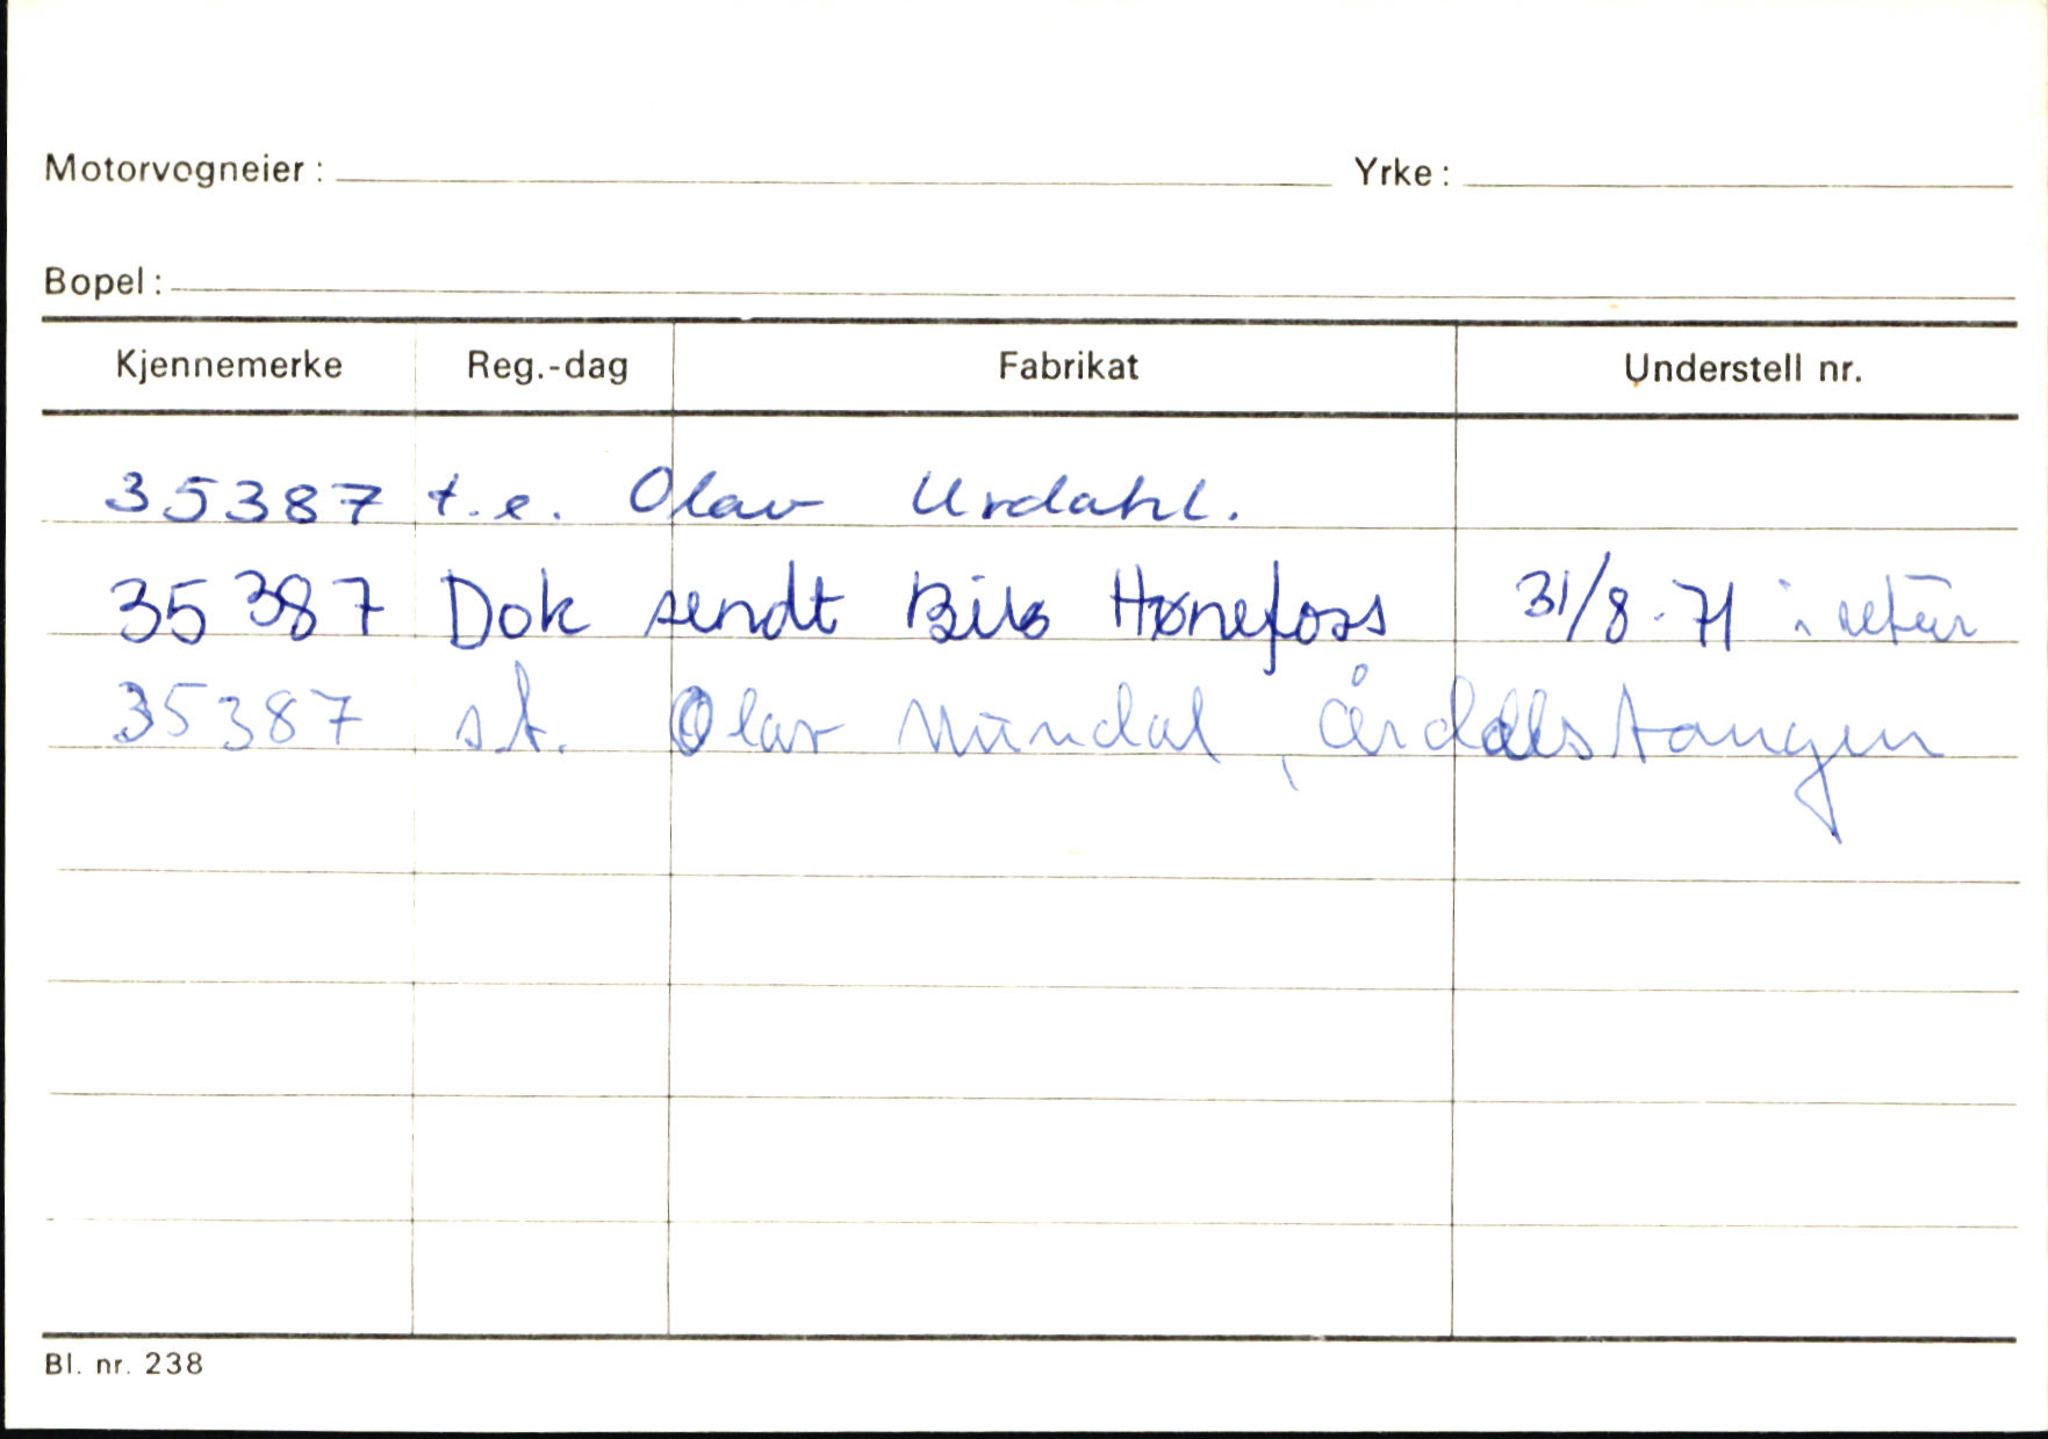 Motorvogneier: Yrke:
Bopel:
Kjennemerke Reg.-dag Fabrikat Understell nr.
35387 t.e. Olav Urdahl.
35387 Dok sendt Bils Hønefoss 31/8-71 i retur
35387 st. Olav Mundal, Årdalstangen
Bl. nr. 238